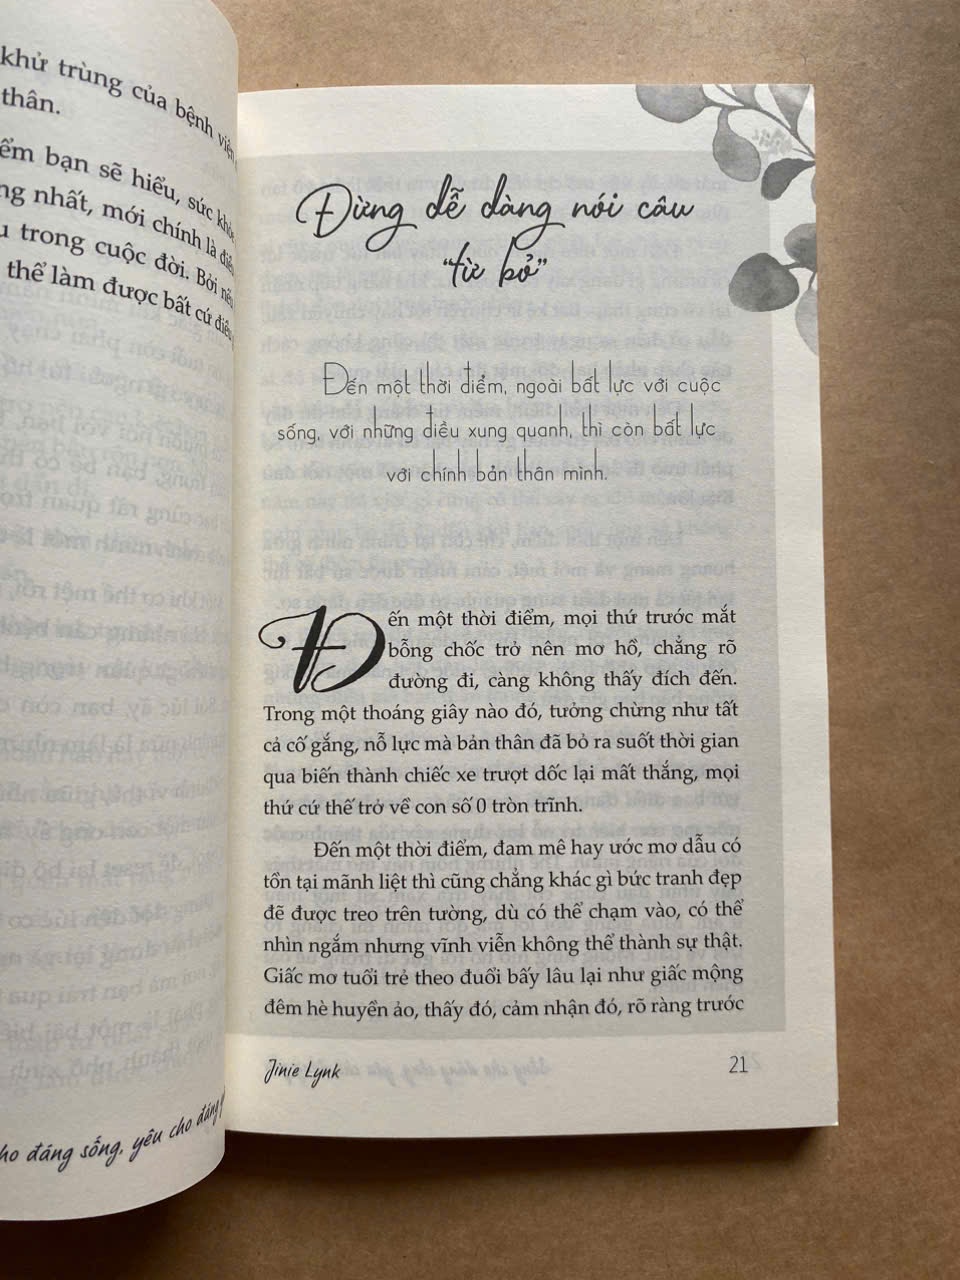 khử trùng của bệnh viện
thân.
ểm bạn sẽ hiểu, sức khỏe
ng nhất, mới chính là điều
u trong cuộc đời. Bởi nếu
thể làm được bất cứ điều
ho đáng sống, yêu cho đáng
Đừng dễ dàng nói câu
“từ bỏ”
Đến một thời điểm, ngoài bất lực với cuộc
sống, với những điều xung quanh, thì còn bất lực
với chính bản thân mình.
Đến một thời điểm, mọi thứ trước mắt
bỗng chốc trở nên mơ hồ, chẳng rõ
đường đi, càng không thấy đích đến.
Trong một thoáng giây nào đó, tưởng chừng như tất
cả cố gắng, nỗ lực mà bản thân đã bỏ ra suốt thời gian
qua biến thành chiếc xe trượt dốc lại mất thắng, mọi
thứ cứ thế trở về con số 0 tròn trĩnh.
Đến một thời điểm, đam mê hay ước mơ dẫu có
tồn tại mãnh liệt thì cũng chẳng khác gì bức tranh đẹp
đẽ được treo trên tường, dù có thể chạm vào, có thể
nhìn ngắm nhưng vĩnh viễn không thể thành sự thật.
Giấc mơ tuổi trẻ theo đuổi bấy lâu lại như giấc mộng
đêm hè huyền ảo, thấy đó, cảm nhận đó, rõ ràng trước
Jinie Lynk
21